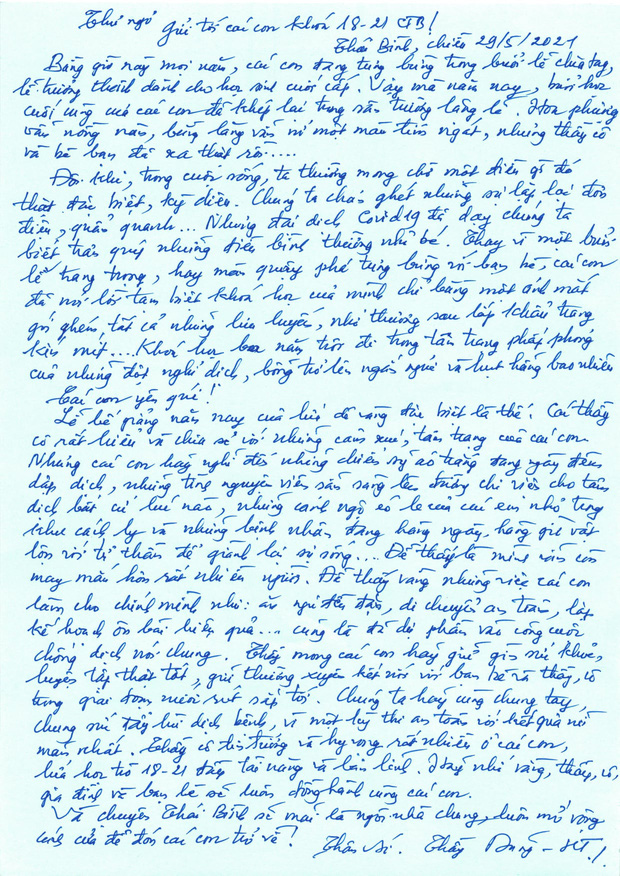 Thư ngỏ
gửi tới các con khoá 18-21 CTB!
Thái Bình, chiều 29/5/2021
Bằng giờ này mọi năm, các con đang tưng bừng trong buổi lễ chia tay,
lễ trưởng thành dành cho học sinh cuối cấp. Vậy mà năm nay, buổi học
cuối cùng của các con đã khép lại trong sân trường lặng lẽ. Hoa phượng
vẫn nồng nàn, bằng lăng vẫn nở một màu tím ngát, nhưng thầy cô
và bè bạn đã xa thật rồi....
Đôi khi, trong cuộc sống, ta thường mong chờ một điều gì đó
thật đặc biệt, kỳ diệu. Chúng ta chán ghét những sự lặp lại đơn
điệu, quẩn quanh... Nhưng đại dịch Covid19 đã dạy chúng ta
biết trân quý những điều bình thường nhỏ bé. Thay vì một buổi
lễ trang trọng, hay màn quậy phá tưng bừng với bạn bè, các con
đã nói lời tạm biệt khoá học của mình chỉ bằng một ánh mắt
gói ghém, tất cả những lưu luyến, nhớ thương sau lớp khẩu trang
kín mít.... Khoá học ba năm trôi đi trong tâm trạng phấp phỏng
của những đợt nghỉ dịch, bỗng trở lên ngắn ngủi và hụt hẫng bao nhiêu
Các con yêu quí!
Lễ bế giảng năm nay của lứa dê vàng đặc biệt là thế. Các thầy
cô rất hiểu và chia sẻ với những cảm xúc, tâm trạng của các con.
Nhưng các con hãy nghĩ đến những chiến sỹ áo trắng đang ngày đêm
dập dịch, những tình nguyện viên sẵn sàng lên đường chi viện cho tâm
dịch bất cứ lúc nào, những cảnh ngộ éo le của các em nhỏ trong
khu cách ly và những bệnh nhân đang hàng ngày, hàng giờ vật
lộn với tử thần để giành lại sự sống.... Để thấy là mình vẫn còn
may mắn hơn rất nhiều người. Để thấy rằng những việc các con
làm cho chính mình như: ăn ngủ đều đặn, di chuyển an toàn, lập
kế hoạch ôn bài hiệu quả... cũng là đã dự phần vào công cuộc
chống dịch nói chung. Thầy mong các con hãy giữ gìn sức khoẻ,
luyện tập thật tốt, giữ thường xuyên kết nối với bạn bè và thầy, cô
trong giai đoạn nước rút sắp tới. Chúng ta hãy cùng chung tay,
chung sức đẩy lùi dịch bệnh, vì một kỳ thi an toàn với kết quả mỹ
mãn nhất. Thầy cô tin tưởng và hy vọng rất nhiều ở các con,
lứa học trò 18-21 đầy tài năng và bản lĩnh. Hãy nhớ rằng, thầy, cô,
gia đình và bạn bè sẽ luôn đồng hành cùng các con.
Và chuyên Thái Bình sẽ mãi là ngôi nhà chung, luôn mở rộng
cánh cửa để đón các con trở về!
Thân ái. Thầy Dũng - HT.!